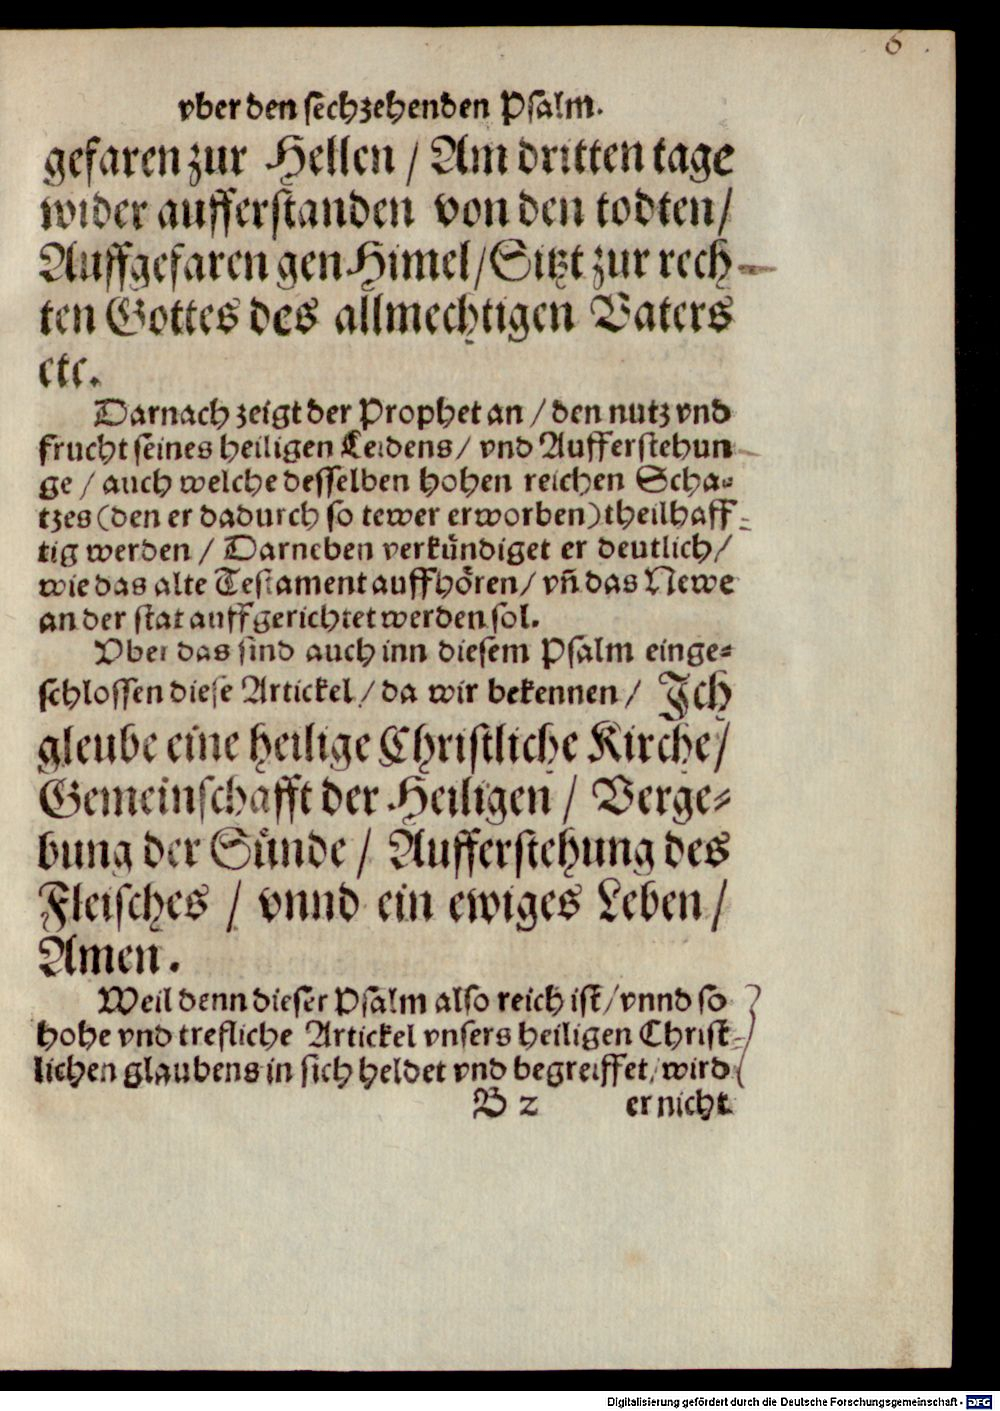 6
vber den sechzehenden Psalm.
gefaren zur Hellen / Am dritten tage
wider aufferstanden von den todten /
Auffgefaren gen Himel / Sitzt zur rech-
ten Gottes des allmechtigen Vaters
etc.
Darnach zeigt der Prophet an / den nutz vnd
frucht seines heiligen Leidens / vnd Aufferstehun-
ge / auch welche desselben hohen reichen Scha-
tzes (den er dadurch so tewer erworben) theilhaff-
tig werden / Darneben verkündiget er deutlich /
wie das alte Testament auffhören / vn̄ das Newe
an der stat auffgerichtet werden sol.
Vber das sind auch inn diesem Psalm einge-
schlossen diese Artickel / da wir bekennen / Ich
gleube eine heilige Christliche Kirche /
Gemeinschafft der Heiligen / Verge-
bung der Sünde / Aufferstehung des
Fleisches / vnnd ein ewiges Leben /
Amen.
Weil denn dieser Psalm also reich ist / vnnd so
hohe vnd trefliche Artickel vnsers heiligen Christ-
lichen glaubens in sich heldet vnd begreiffet / wird
B 2 er nicht
Digitalisierung gefördert durch die Deutsche Forschungsgemeinschaft - DFG